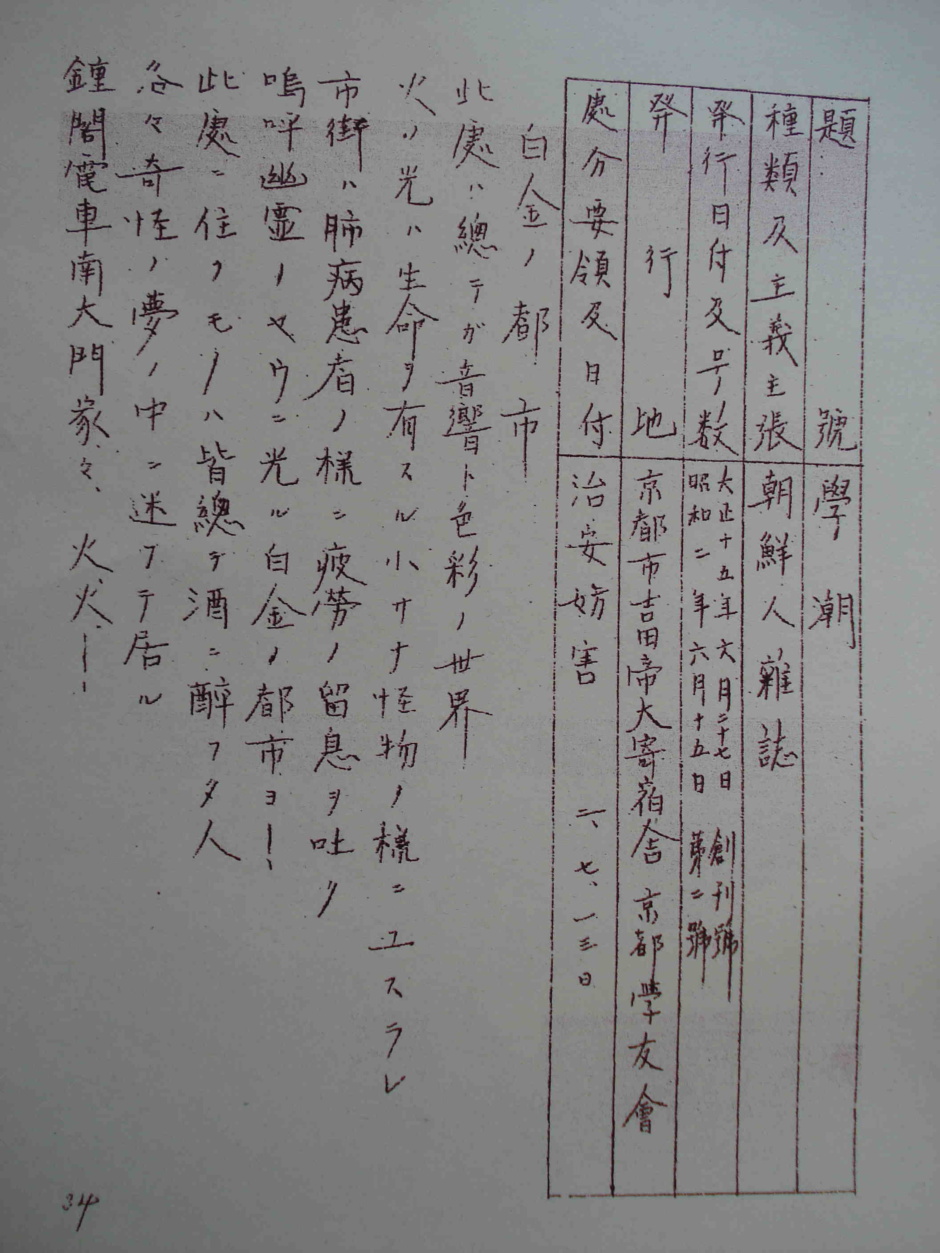 題號 學潮
種類及主義主張 朝鮮人雜誌
發行日付及号ノ数 大正十五年六月二十七日 創刊號
昭和二年六月十五日 第二號
發行地 京都市吉田帝大寄宿舎 京都學友會
處分要領及日付 治安妨害 二、七、一三日
白金ノ都市
此處ハ總テガ音響ト色彩ノ世界
火ノ光ハ生命ヲ有スル小サナ怪物ノ様ニユスラレ
市街ハ肺病患者ノ様ニ疲勞ノ留息ヲ吐ク
嗚呼幽霊ノヤウニ光ル白金ノ都市ヨー
此處ニ住ノモノハ皆總テ酒ニ醉フタ人
各々奇怪ノ夢ノ中ニ迷フテ居ル
鍾閣電車南大門家々、火火ー
34